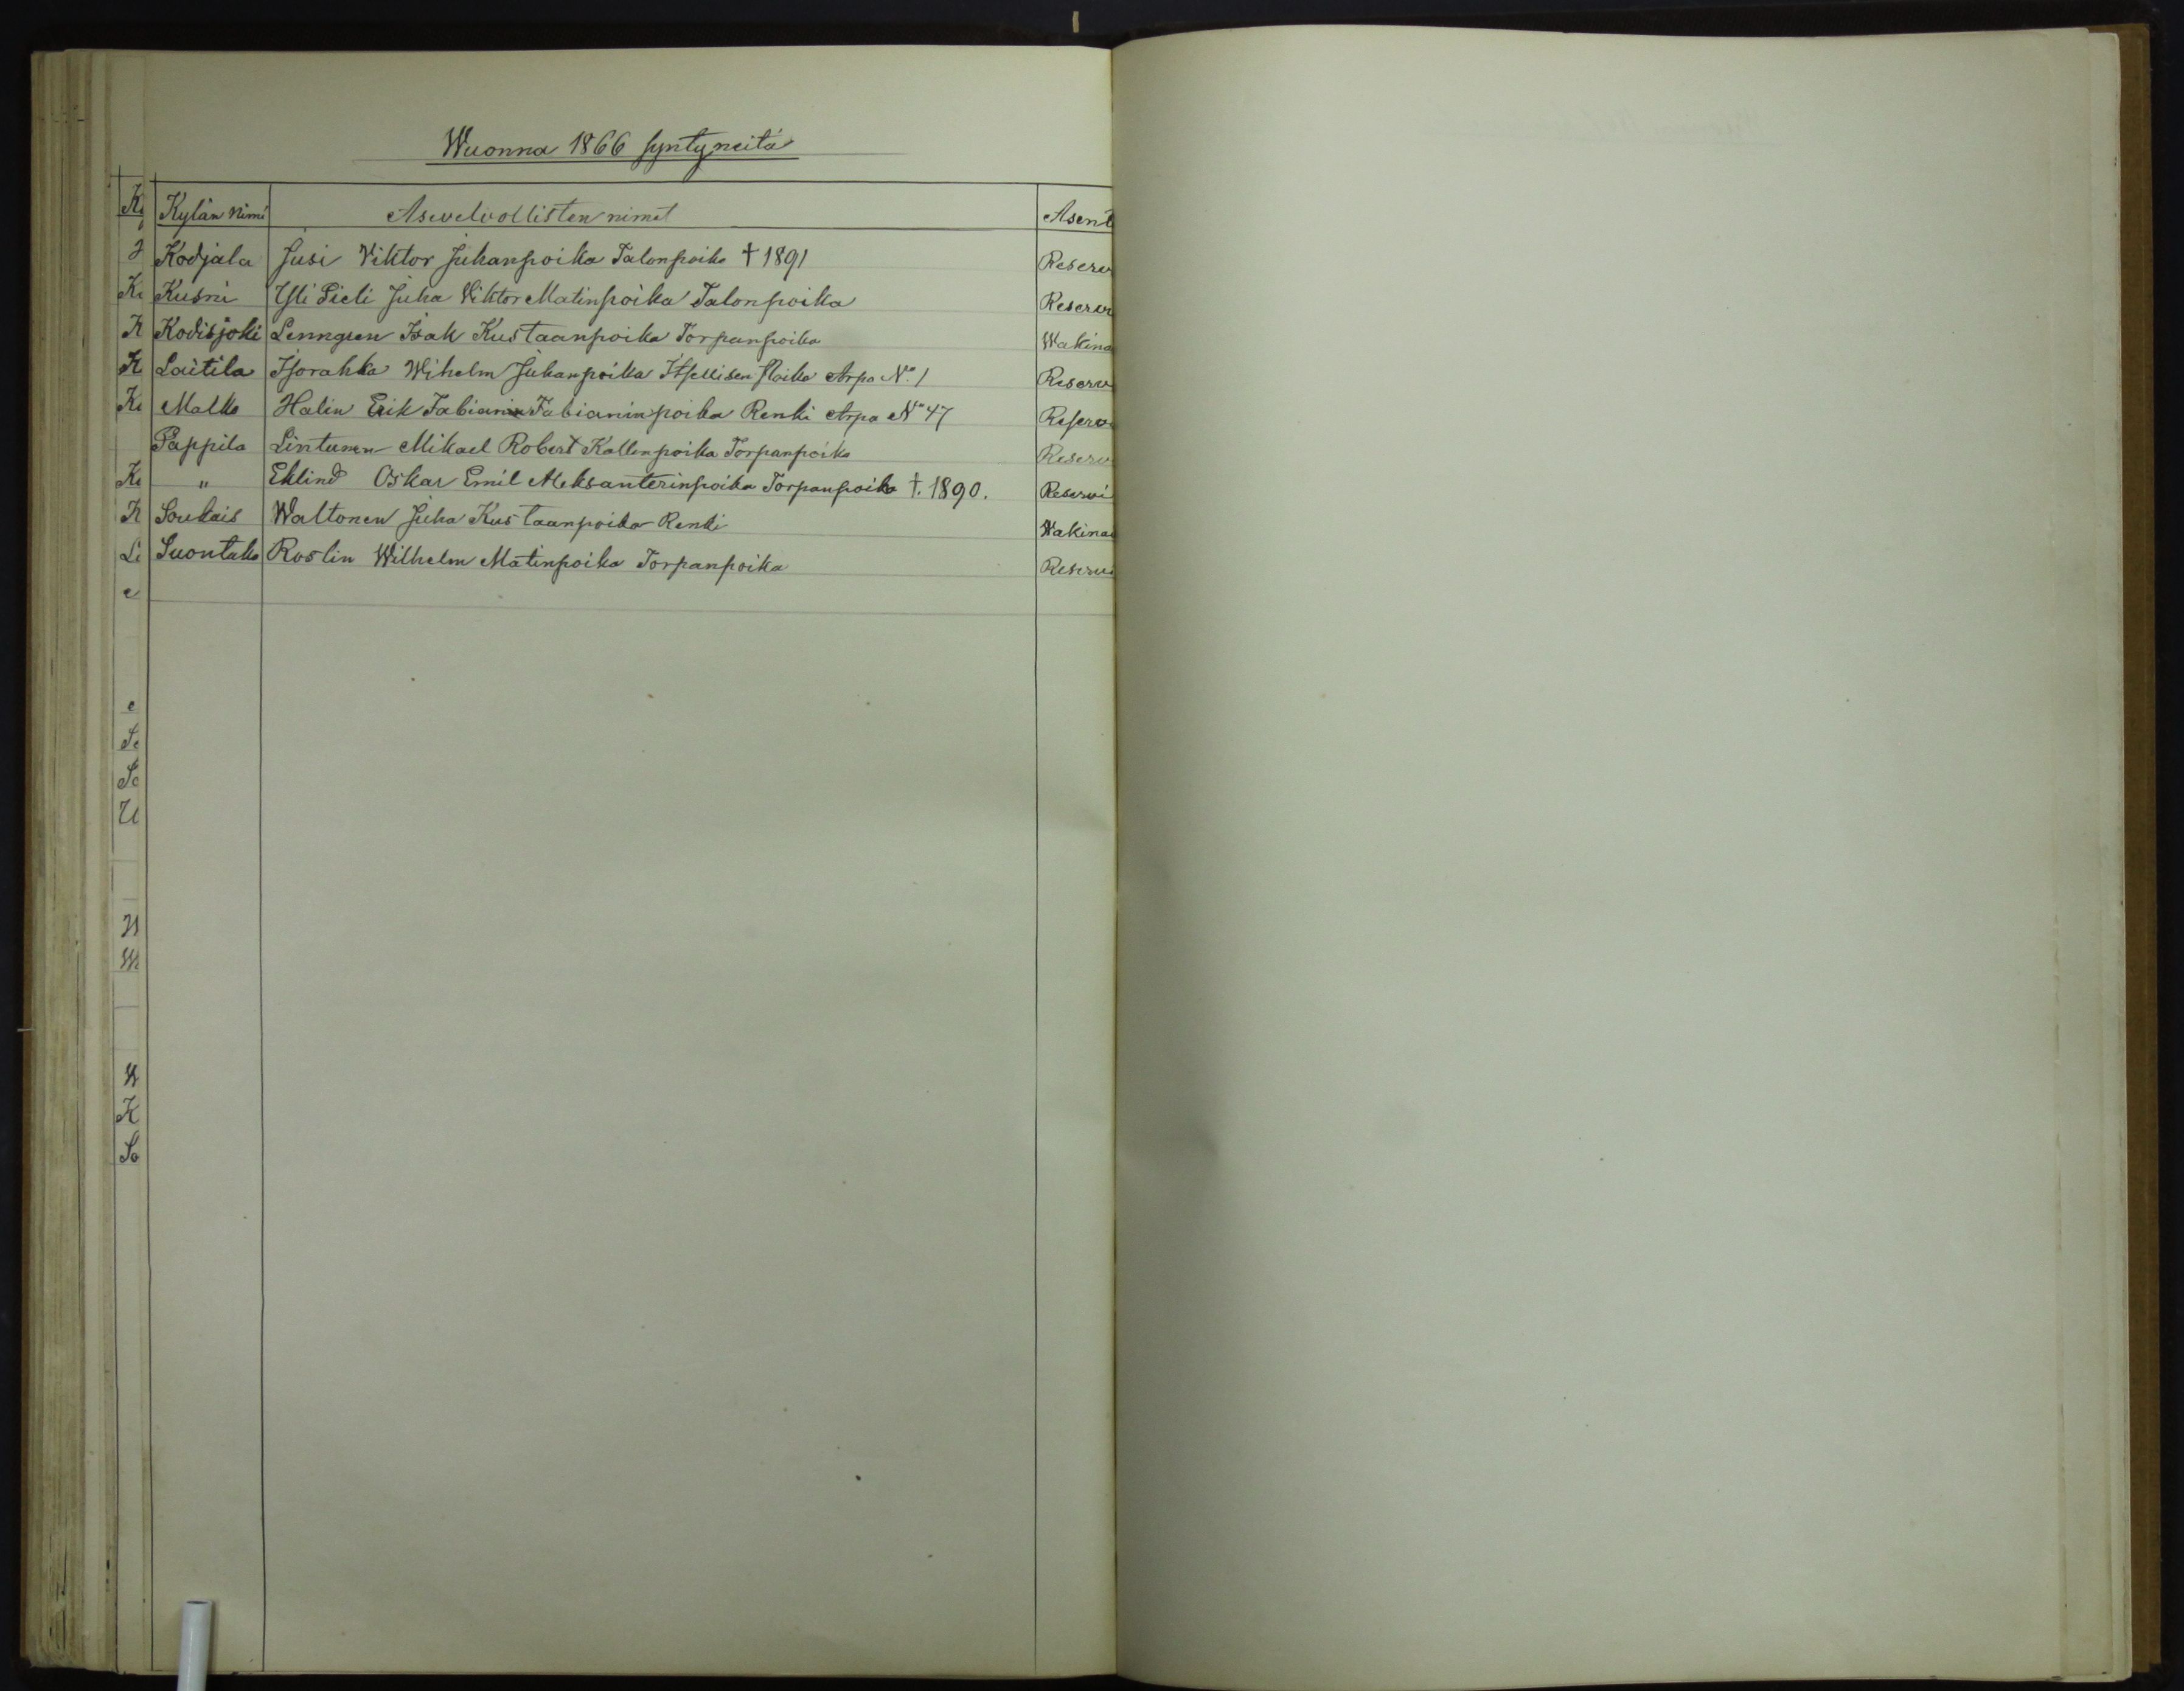 Wuonna 1866 syntyneitä
Kylän nimi Asevelvollisten nimet Asent
Kodjala Jusi Viktor Juhanpoika Talonpoika † 1891 Reserv
Kusni Yli Sieli Juha Viktor Matinpoika Talonpoika Reserv
Kodisjoki Lenngren Isak Kustaanpoika Torpanpoika Wakina
Laitila Isorahka Wihelm Juhanpoika Itsellisen Poika Arpa No. 1 Reserv
Malko Halin Erik Fabianin Fabianinpoika Renki Arpa No 47 Reserv
Pappila Lintunen Mikael Robert Kallenpoika Torpanpoika Reserv
" Eklind Oskar Emil Aleksanterinpoika Torpanpoika †. 1890. Reservi
Soukais Waltonen Juha Kustaanpoika Renki Wakina
Suontaka Roslin Wilhelm Matinpoika Torpanpoika Reserv